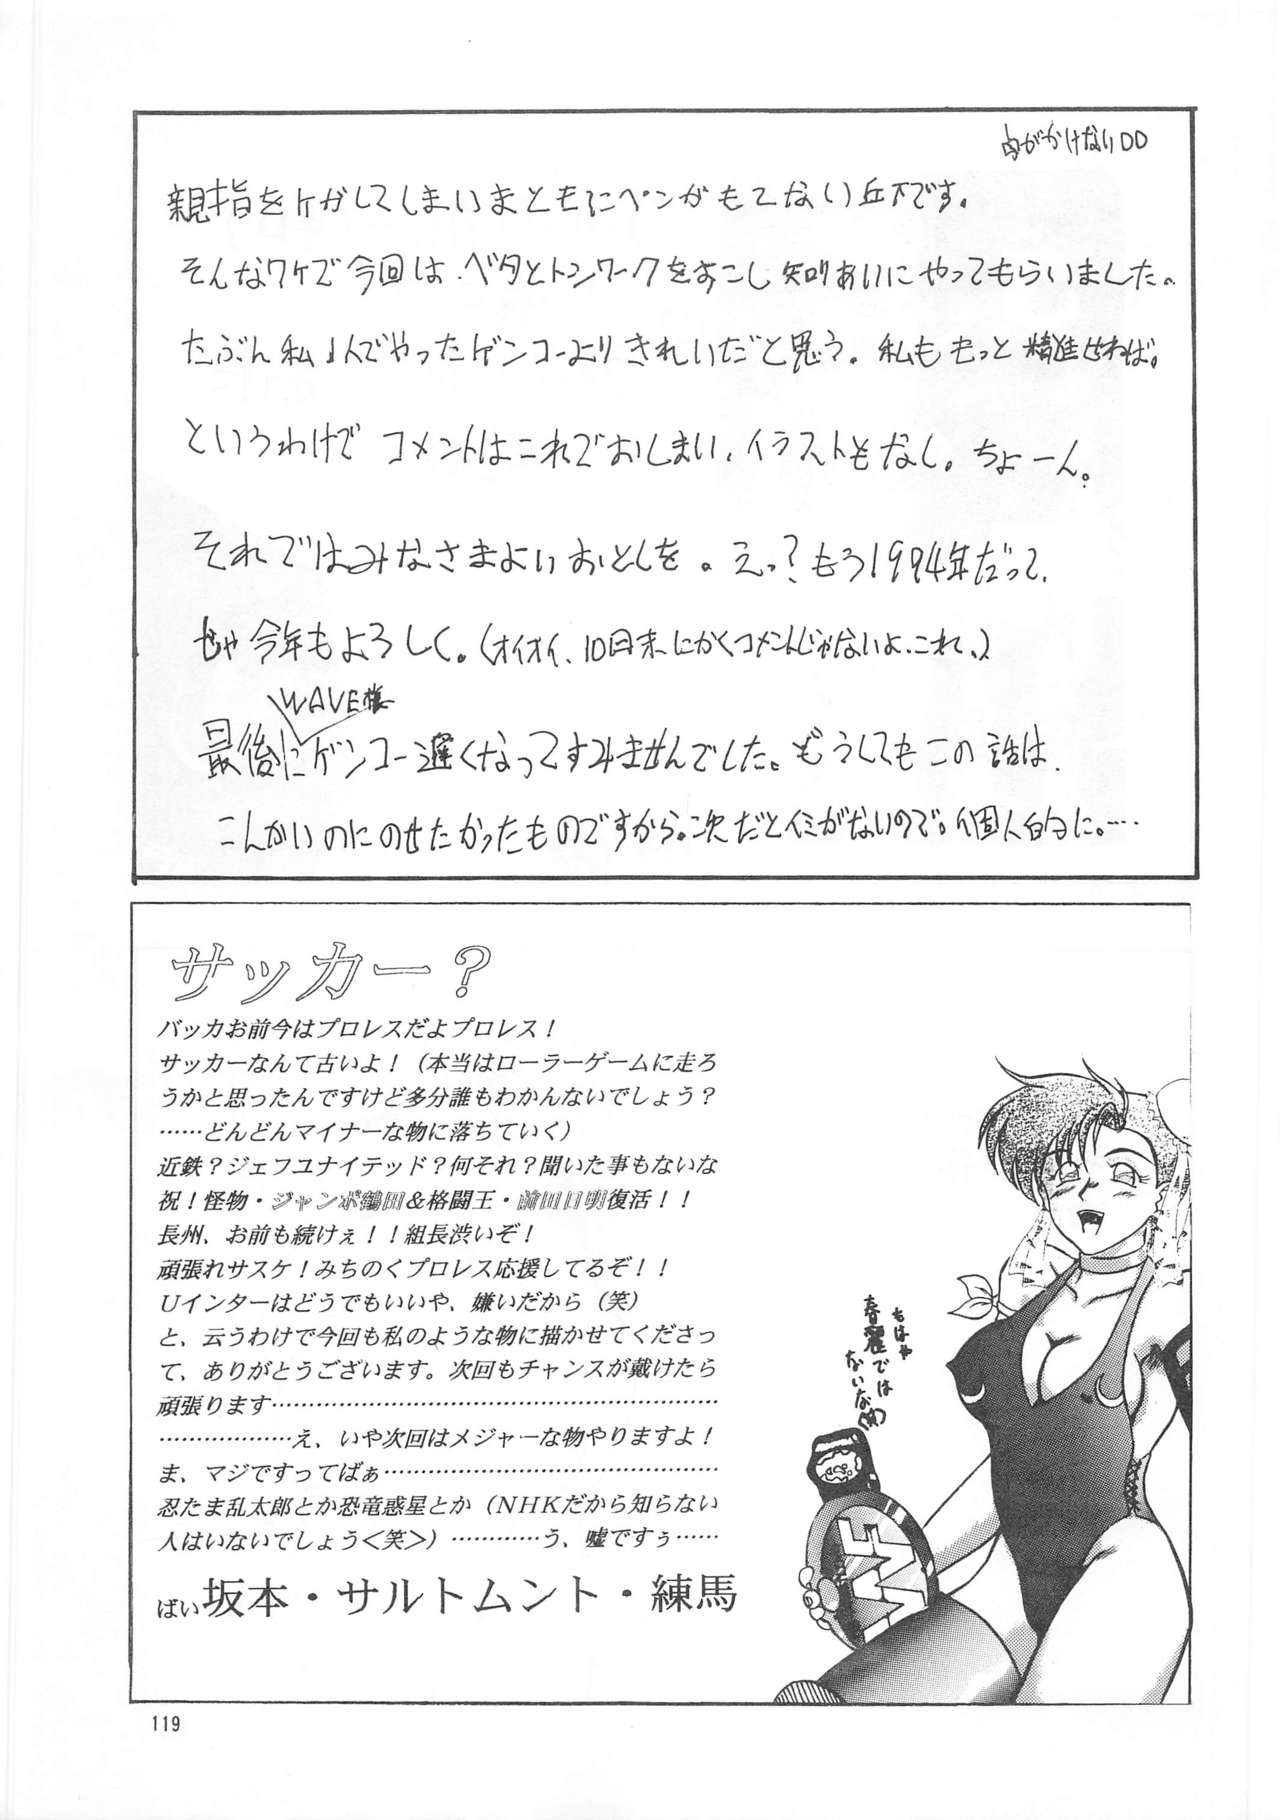 字がかけないDD
親指をケガしてしまいまともにペンがもてない丘下です。
そんなワケで今回は、ベタとトンワークをすこし知りあいにやってもらいました。
たぶん私1人でやったゲンコーよりきれいだと思う。私ももっと精進せねば。
というわけでコメントはこれでおしまい、イラストもなし。ちょーん。
それではみなさまよいおとしを。えっ?もう1994年だって、
じゃ今年もよろしく。(オイオイ、10月末にかくコメントじゃないよ、これ、)
WAVE様
最後にゲンコー遅くなってすみませんでした。どうしてもこの話は、
こんかいのにのせたかったものですから。次だとイミがないので。個人的に。…
サッカー?
バッカお前今はプロレスだよプロレス!
サッカーなんて古いよ!(本当はローラーゲームに走ろ
うかと思ったんですけど多分誰もわかんないでしょう?
……どんどんマイナーな物に落ちていく)
近鉄?ジェフユナイテッド?何それ?聞いた事もないな
祝!怪物・ジャンボ鶴田&格闘王・前田日明復活!!
長州、お前も続けぇ!!組長渋いぞ!
頑張れサスケ!みちのくプロレス応援してるぞ!!
Uインターはどうでもいいや、嫌いだから(笑)
と、云うわけで今回も私のような物に描かせてくださっ
て、ありがとうございます。次回もチャンスが戴けたら
頑張ります……………………………………………………
………………え、いや次回はメジャーな物やりますよ!
ま、マジですってばぁ………………………………………
忍たま乱太郎とか恐竜惑星とか(NHKだから知らない
人はいないでしょう<笑>)…………う、嘘ですぅ……
ばい坂本・サルトムント・練馬
もはや
春麗では
ないな(笑)
WWF
119